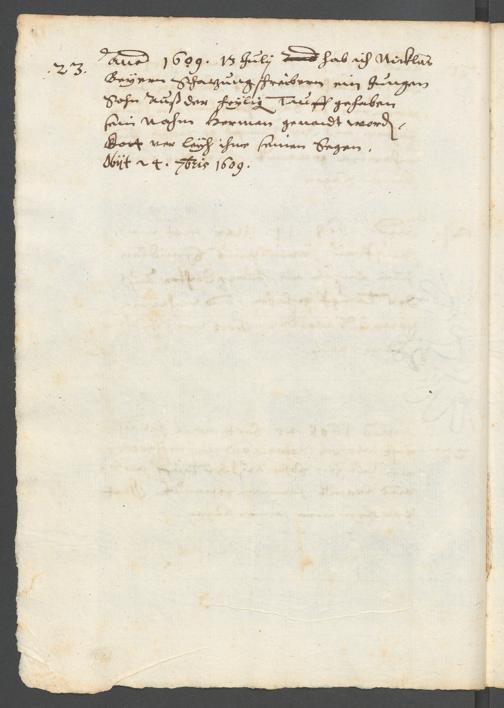 .23. Anno 1609. 13 July hab ich Nicklas
Beÿern Schatzung schreibern ein Jungen
Sohn Auß der heÿlig Tauff gehaben
sein Nahm Herman genandt word,
Gott ver leÿh ihme seinen Segen.
Obijt 24. 7bris 1609.